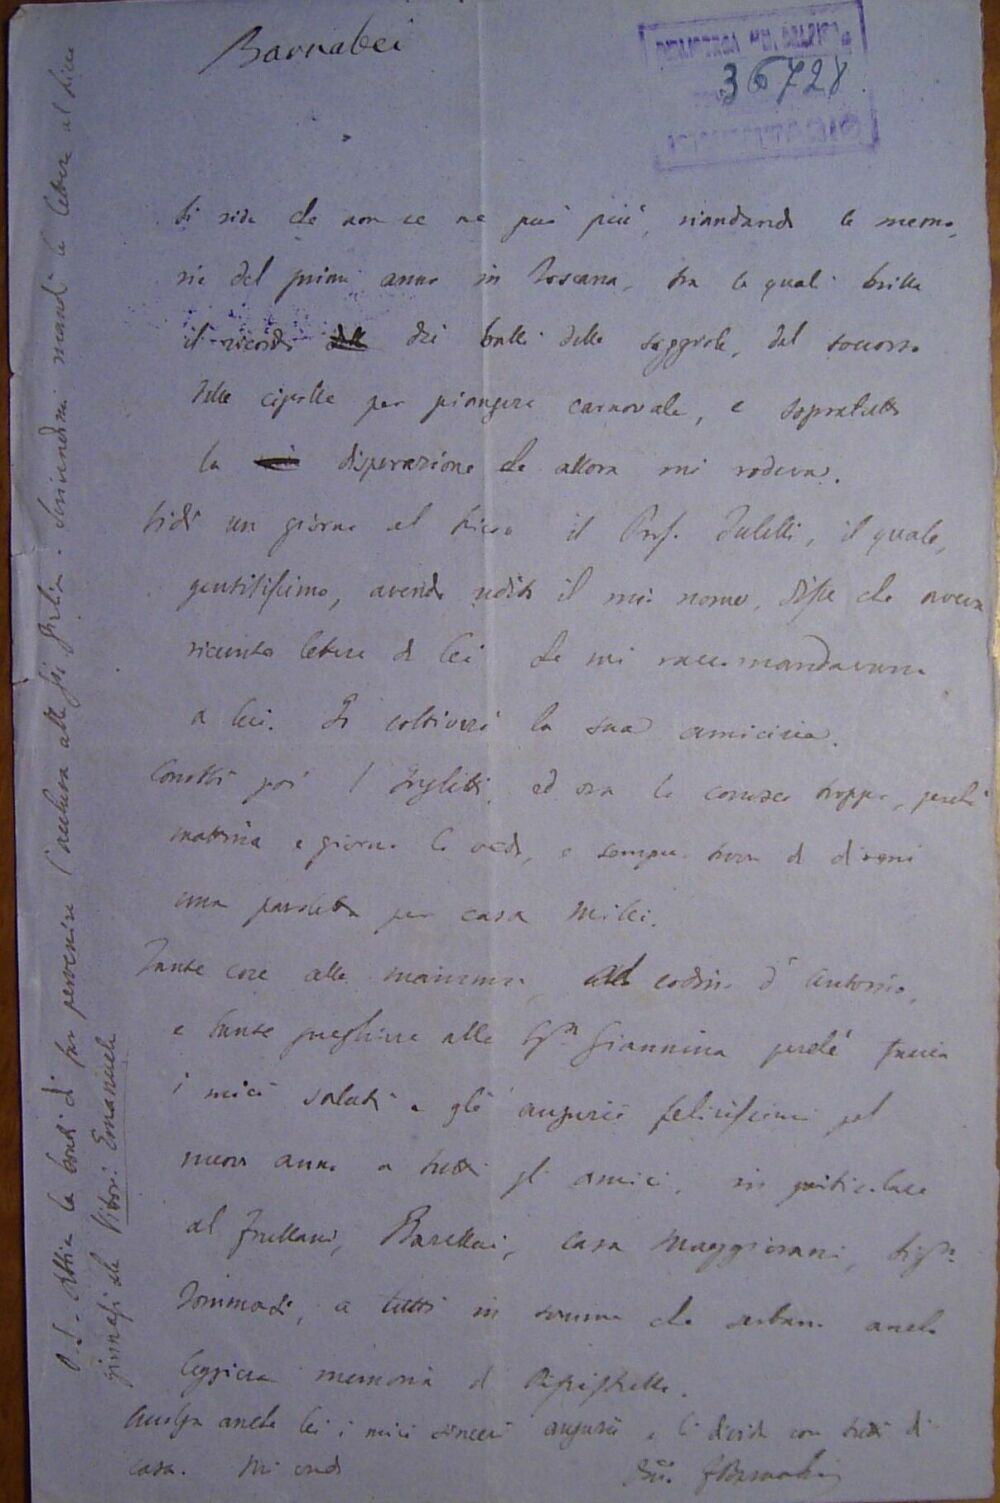 Barnabei
BIBLIOTECA "M. DELFICO"
36728
si ride che non se ne può più, riandando le memo-
rie del primo anno in Toscana, tra le quali brilla
il ricordo dei balli delle seggiole, del soccorso
delle cipolle per piangere carnovale, e sopratutto
la disperazione che allora mi rodeva.
Vidi un giorno al Liceo il Prof. , il quale,
gentilissimo, avendo udito il mio nome, disse che aveva
ricevuto lettere di lei che mi raccomandavano
a lui. Io coltiverò la sua amicizia.
Conobbi poi l' ed ora lo conosco troppo, perché
mattina e giorno lo vedo, e sempre trova di dirmi
una paroletta per casa Milli.
Tante cose alla mamma, al codino d'Antonio,
e tante preghiere alla Sigra Giannina perché faccia
i miei saluti e gli augurii felicissimi pel
nuovo anno a tutti gli amici, in particolare
al Frullani, Barellai, casa Maggiorani, Sigra
, a tutti in somma che serbano anche
leggiera memoria di Pipistrello.
Accolga anche lei i miei sinceri augurii e li divida con tutti di
casa. Mi creda
FBarnabei
P.S. Abbia la bontà di far pervenire l'acclusa alla . Scrivendomi mandi le lettere al Liceo
ginnasiale Vittorio Emanuele